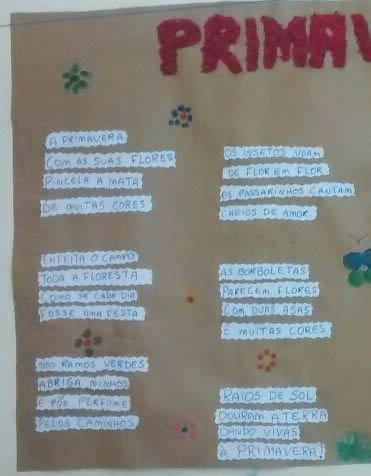 PRIMAV
A PRIMAVERA
COM AS SUAS FLORES
PINCELA A MATA
DE MUITAS CORES
ENFEITA O CAMPO
TODA A FLORESTA
COMO SE CADA DIA
FOSSE UMA FESTA
NOS RAMOS VERDES
ABRIGA NINHOS
E PÕE PERFUME
PELOS CAMINHOS
OS INSETOS VOAM
DE FLOR EM FLOR
OS PASSARINHOS CANTAM
CHEIOS DE AMOR
AS BORBOLETAS
PARECEM FLORES
COM DUAS ASAS
E MUITAS CORES
RAIOS DE SOL
DOURAM A TERRA
DANDO VIVAS
A PRIMAVERA!